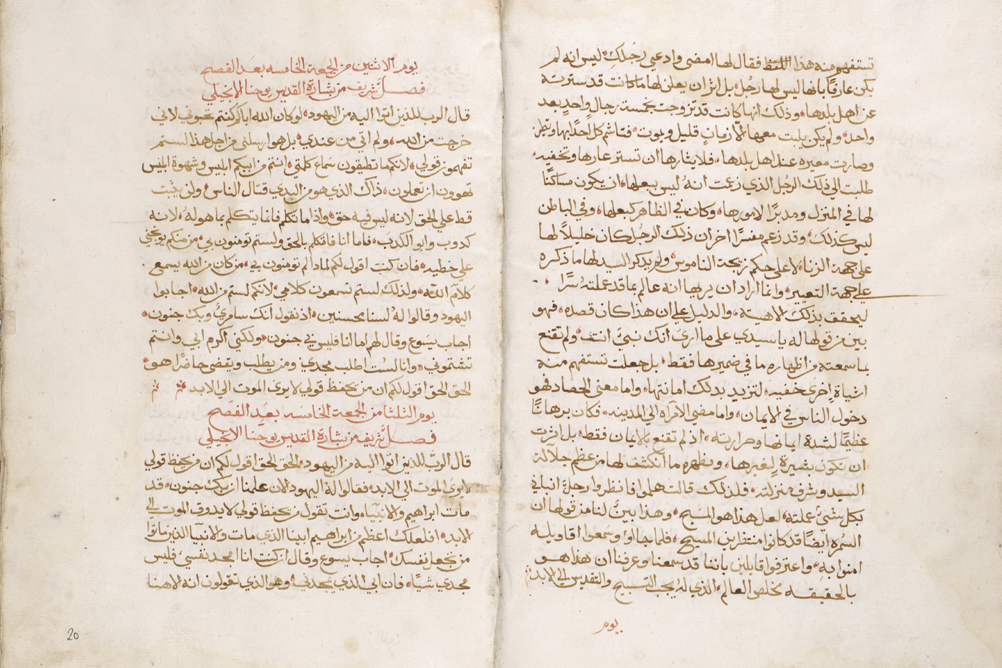 تستفهم منه هذا اللفظ فقال لها امضي وادعي رجلك ليس انه لم
يكن عارفاً بانها ليس لها رجل بل اثر ان يعلن لها ما كانت قد سترته
عن اهل بلدها وذلك انها كانت قد تزوجت بخمسة رجال واحد بعد
واحد ولم يكن يلبث معهم الا زمان قليل ويموت
وصارت معيره عند اهل بلدها فلايثارها ان تستر عارها وتخفيه
طلبت الي ذلك الرجل الذي زعمت انه ليس ببعلها ان يكون مساكناً
لها في المنزل ومدبراً لامورها وكان في الظاهر كبعلها وفي الباطن
ليس كذلك وقد زعم مفسراً اخر ان ذلك الرجل كان خليلاً لها
علي جهة الزنا لا علي حكم زيجة الناموس ولم يذكر السيد لها ما ذكره
علي جهة التعيير وانما اراد ان يريها انه عالم بما قد عملته سراً
ليحقق بذلك لاهيته والدليل علي ان هذا كان قصده فهو
بين من قولها له يا سيدي علي ما اري انك نبي انت ولم تقنع
بما سمعته من اظهاره ما في ضميرها فقط بل جعلت تستفهم منه
اشياء اخري خفيه لتزيد بذلك امانتها واما معني الحصاد فهو
دخول الناس في الايمان واما مضي الامراه الي المدينه فكان برهاناً
عظيماً لشدة ايمانها وحرارته اذ لم تقنع بالايمان فقط بل اثرت
ان تكون بشيرة لغيرها ومظهره ما انكشف لها من عظم جلالة
السيد وشرف منزلته فلذلك قالت هلموا فانظروا رجلاً انباني
بكل شي عملته لعل هذا هو المسيح وهذا بين لنا من قولها ان
السمره ايضاً قد كانوا منتظرين المسيح فلما جاوا وسمعوا اقاويله
امنوا به واعترفوا قايلين باننا قد سمعنا وعرفنا ان هذا هو
بالحقيقه مخلص العالم الذي له يجب التسبيح والتقديس الي الابد
يوم
يوم الاثنين من الجمعة الخامسه بعد الفصح
فصل شريف من بشارة القديس يوحنا الانجيلي
قال الرب للذين اتوا اليه من اليهود لو كان الله اباكم كنتم تحبوني لاني
خرجت من الله ولم اتي من عندي بل هو ارسلني من اجل هذا لستم
تفهمون قولي لانكم ما تطيقون سماع كلمتي انتم من ابيكم ابليس وشهوة ابليس
تهوون ان تعملون ذاك الذي هو من البدي قتال الناس ولن يثبت
قط علي الحق لانه ليس فيه حق واذا ما تكلم فانما يتكلم بما هو له لانه
كدوب وابو الكدب فاما انا فاتكلم بالحق ولستم تومنون بي من منكم يوبخني
علي خطيه فان كنت اقول لكم لماذا لم تومنون بي من كان من الله يسمع
كلام الله ولذلك لستم تسمعون كلامي لانكم لستم من الله اجابوا
اليهود وقالوا له لسنا محسنين اذ نقول انك سامري وبك جنون
اجاب يسوع وقال لهم اما انا فليس بي جنون ولكني اكرم ابي وانتم
تشتموني وانا لست اطلب مجدي من يطلب ويقضي حاضراً هو
الحق الحق اقول لكم ان من يحفظ قولي لا يري الموت الي الابد
يوم الثلثا من الجمعة الخامسه بعد الفصح
فصل شريف من بشارة القديس يوحنا الانجيلي
قال الرب للذين اتوا اليه من اليهود الحق الحق اقول لكم ان من يحفظ قولي
لا يري الموت الي الابد فقالوا له اليهود الان علمنا ان بك جنون قد
مات ابراهيم والانبيا وانت تقول من يحفظ قولي لا يدوق الموت الي
الابد افلعلك اعظم من ابراهيم ابينا الذي مات والانبيا الذين ماتوا
من تجعل نفسك اجاب يسوع وقال ان كنت انا امجد نفسي فليس
مجدي شيئاً فان ابي الذي يمجدني هو الذي تقولون انه الاهنا
20